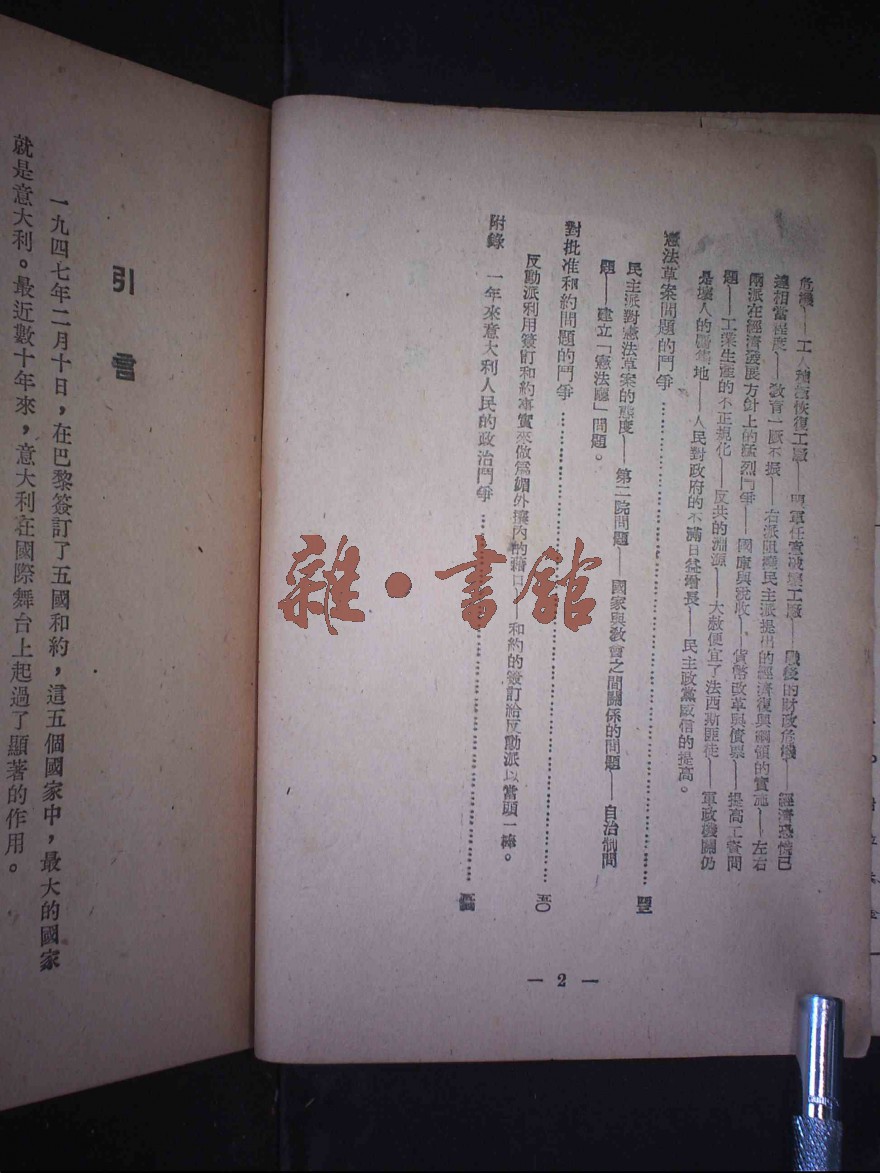 危機——工人積極恢復工廠——盟軍任意破壞工廠——戰後的財政危機——經濟恐慌已
達相當程度——敎育一蹶不振——右派阻撓民主派提出的經濟復興綱領的實施——左右
兩派在經濟發展方針上的猛烈鬥爭——國庫與稅收——貨幣改革與債票——提高工資問
題——工業生產的不正規化——反共的淵源——大赦便宜了法西斯匪徒——軍政機關仍
是壞人的麕集地——人民對政府的不滿日益增長——民主政黨威信的提高。
憲法草案問題的鬥爭……………………………………
民主派對憲法草案的態度——第二院問題——國家與敎會之間關係的問題——自治制問
題——建立「憲法廳」問題。
對批准和約問題的鬥爭……………………………………五〇
反動派利用簽訂和約事實來做爲媚外攘內的藉口——和約的簽訂給反動派以當頭一棒。
附錄 一年來意大利人民的政治鬥爭……………………………………
— 2 —
引言
一九四七年二月十日，在巴黎簽訂了五國和約，這五個國家中，最大的國家
就是意大利。最近數十年來，意大利在國際舞台上起過了顯著的作用。
雜·書館